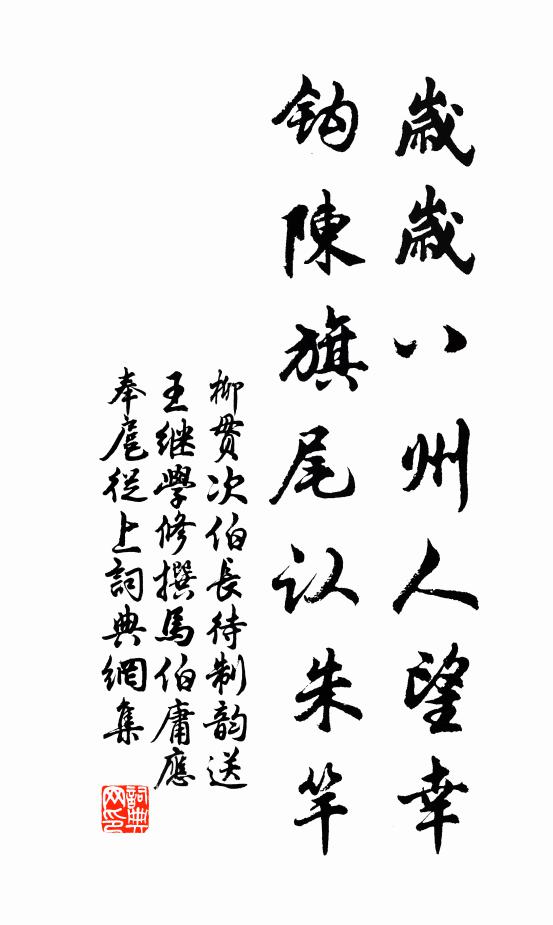 歲歲八州人望幸
鈎陳旗尾认朱竿
柳贯次伯長待制韵送
王继學修撰馬伯庸應
奉扈從上詞典網集
詞典网印